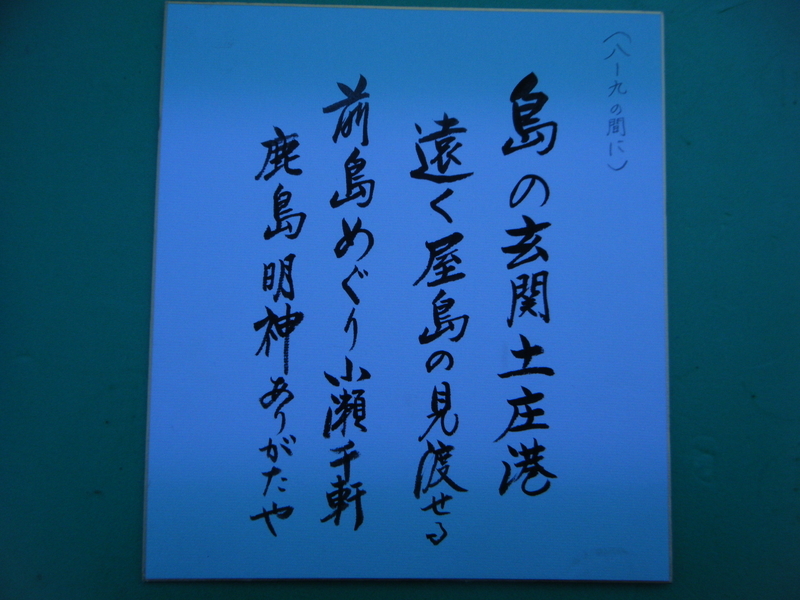 (八ー九の間に)
島の玄関土庄港
遠く屋島の見渡せる
前島めぐり小瀬千軒
鹿島明神ありがたや